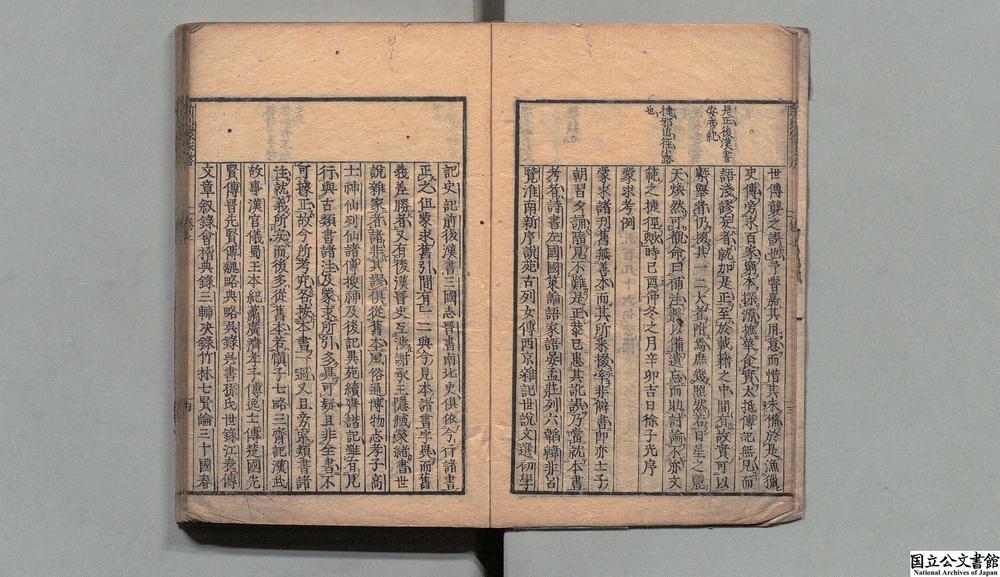 世傳龔之誤世予嘗嘉其用意而惜其未備於是漁獵
史傳旁求百家窮本探源摭華食實大抵傳記無見而
語淺謬妄者就加是正至於載籍之中間有故實可以
槩舉者仍掇其一二大者附焉庶幾照然若日星之麗
天煥然可觀命曰補注聊以備遺忘而助討論不亦文
籠之捷徑歟時己酉仲冬之月辛卯吉日徐子光序
蒙求考例
蒙求諸列舊無善本而其所采摭經非解書即亦士子
朝習夕誦隨見不難是正蒙已患其訛誤乃當就本書
考者詩書左國國策論語家語吳孟莊列六韜韓非呂
覽淮南新序說苑古列女傳西京雜記世說文選初學
是正後漢書
安帝紀
捷邪出徑路
也
記史記前後漢書三國志晉書南北史俱依今行諸書
正之但蒙求舊引間有一二典今見本諸書字異而舊
義差勝者又有後漢晉史互涉謝承王隱臧榮緒書世
說雜家者諸非其謬俱從舊本風俗通博物志孝子高
士神仙列仙諸傳搜神及後記異苑續齊諧記雖有見
行與古類書諸注及蒙求所引多異可疑且非全書不
可據正故今所考究各按本書一過又且旁索類書諸
注就義所安而後多從舊本若慎子七略三齊記漢武
故事漢官儀蜀王本紀蕭廣濟孝子傳逸士傳楚國先
賢傳晉先賢傳魏略典略吳錄吳書孫氏世錄江表傳
文章叙錄會稽典錄三輔決錄竹林七賢論三十國春
国立公文書館
National Archives of Japan